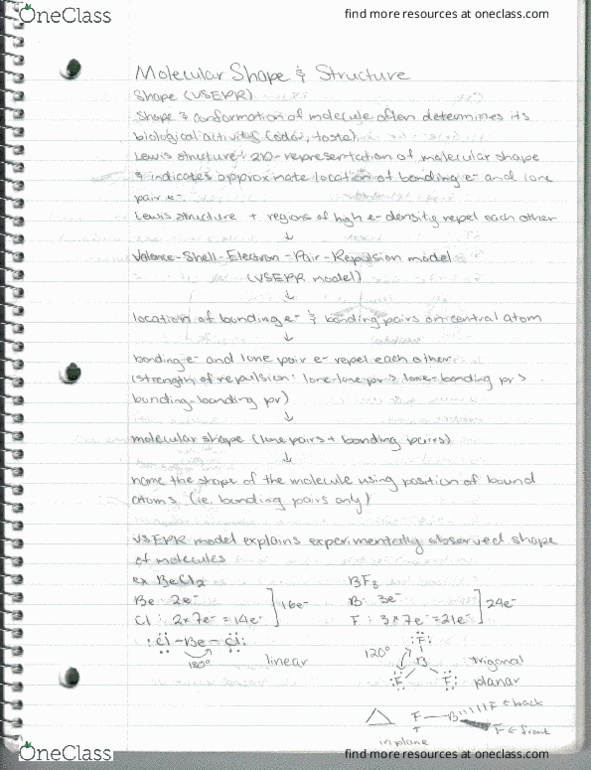 OneClass
find more resources at oneclass.com
Molecular Shape & Structure
Shape (VSEPR)
Shape & conformation of molecule often determines its
biological activity (odor, taste)
Lewis structure: 2D-representation of molecular shape
& indicates approximate location of bonding e⁻ and lone
pair e⁻
Lewis structure + regions of high e⁻ density repel each other
↓
Valence-Shell-Electron-Pair-Repulsion model
(VSEPR model)
↓
location of bonding e⁻ & bonding pairs on central atom
↓
bonding e⁻ and lone pair e⁻ repel each other
(strength of repulsion: lone-lone pr > lone-bonding pr >
bonding-bonding pr)
↓
molecular shape (lone pairs + bonding pairs)
↓
name the shape of the molecule using position of bound
atoms (ie. bonding pairs only)
VSEPR model explains experimentally observed shape
of molecules
ex BeCl₂ BF₃
Be 2e⁻ ] 16e⁻ B 3e⁻ ] 24e⁻
Cl : 2x7e⁻ = 14e⁻ F : 3x7e⁻ = 21e⁻
:Cl-Be-Cl: F
180° linear 120° B trigonal
F F planar
F-B F ← back
↑ F ← front
in plane
OneClass
find more resources at oneclass.com